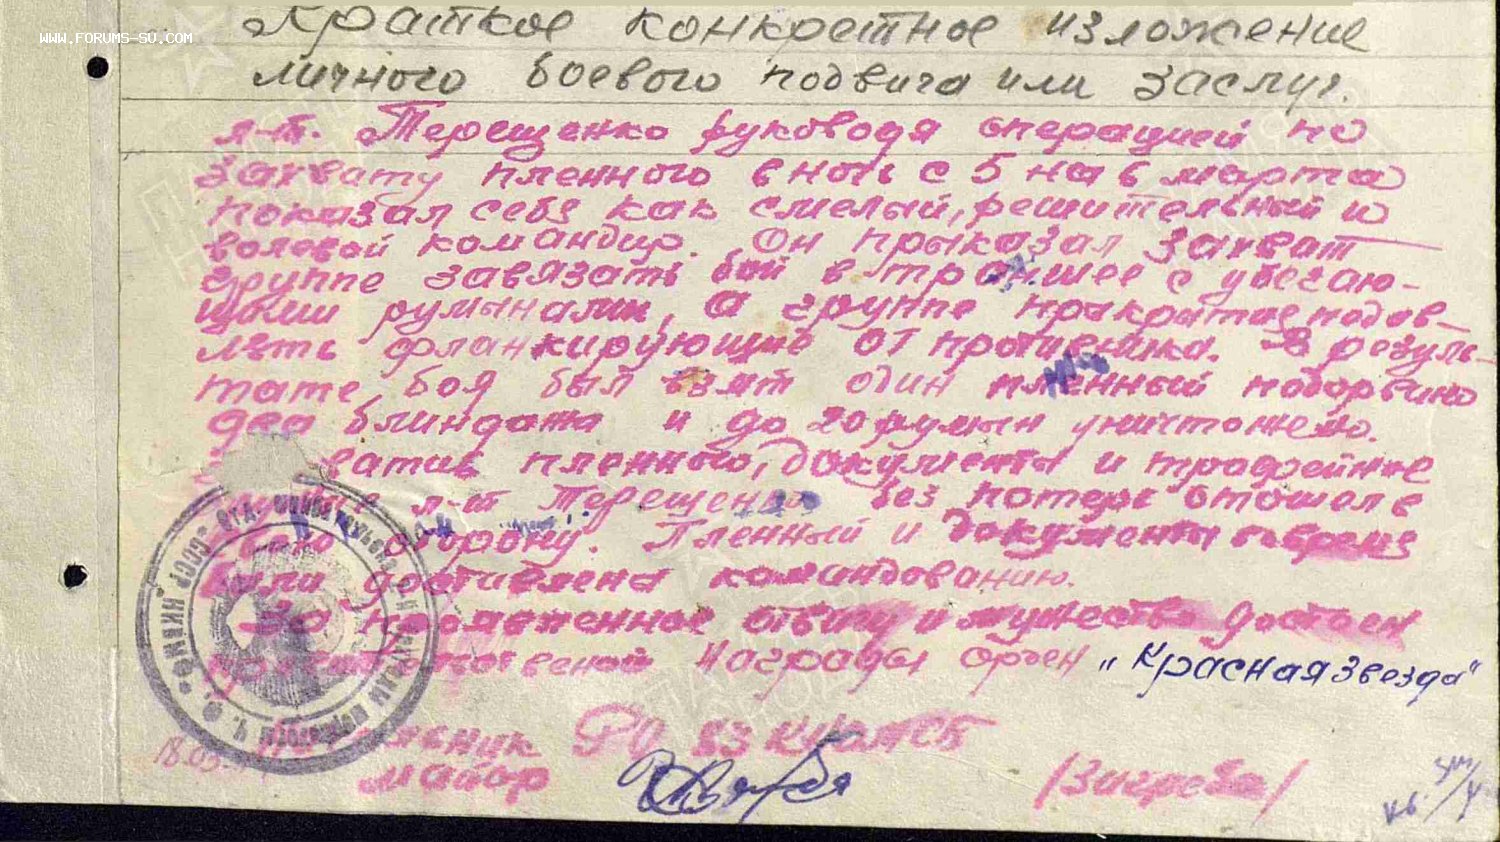 WWW.FORUMS-SU.COM
Краткое конкретное изложение
личного боевого подвига или заслуг.
л-т. Терещенко руководя операцией по
захвату пленного в ночь с 5 на 6 марта
показал себя как смелый, решительный и
волевой командир. Он прыказал захват
группе завязать бой в траншее с убегаю-
щими румынами, а группе прикрытие подав-
лять фланкирующие ОТ противника. В резуль-
тате боя был взят один пленный подорвано
два блиндажа и до 20 румын уничтожено.
ватив пленного, документы и трофейное
л-т Терещенко без потерь отошел в
оборону. Пленный и документы
были доставлена командованию.
За проявленное отвагу и мужество достоин
правительственной награды орден „Красная Звезда"
РО 83
майор
/Загреба/